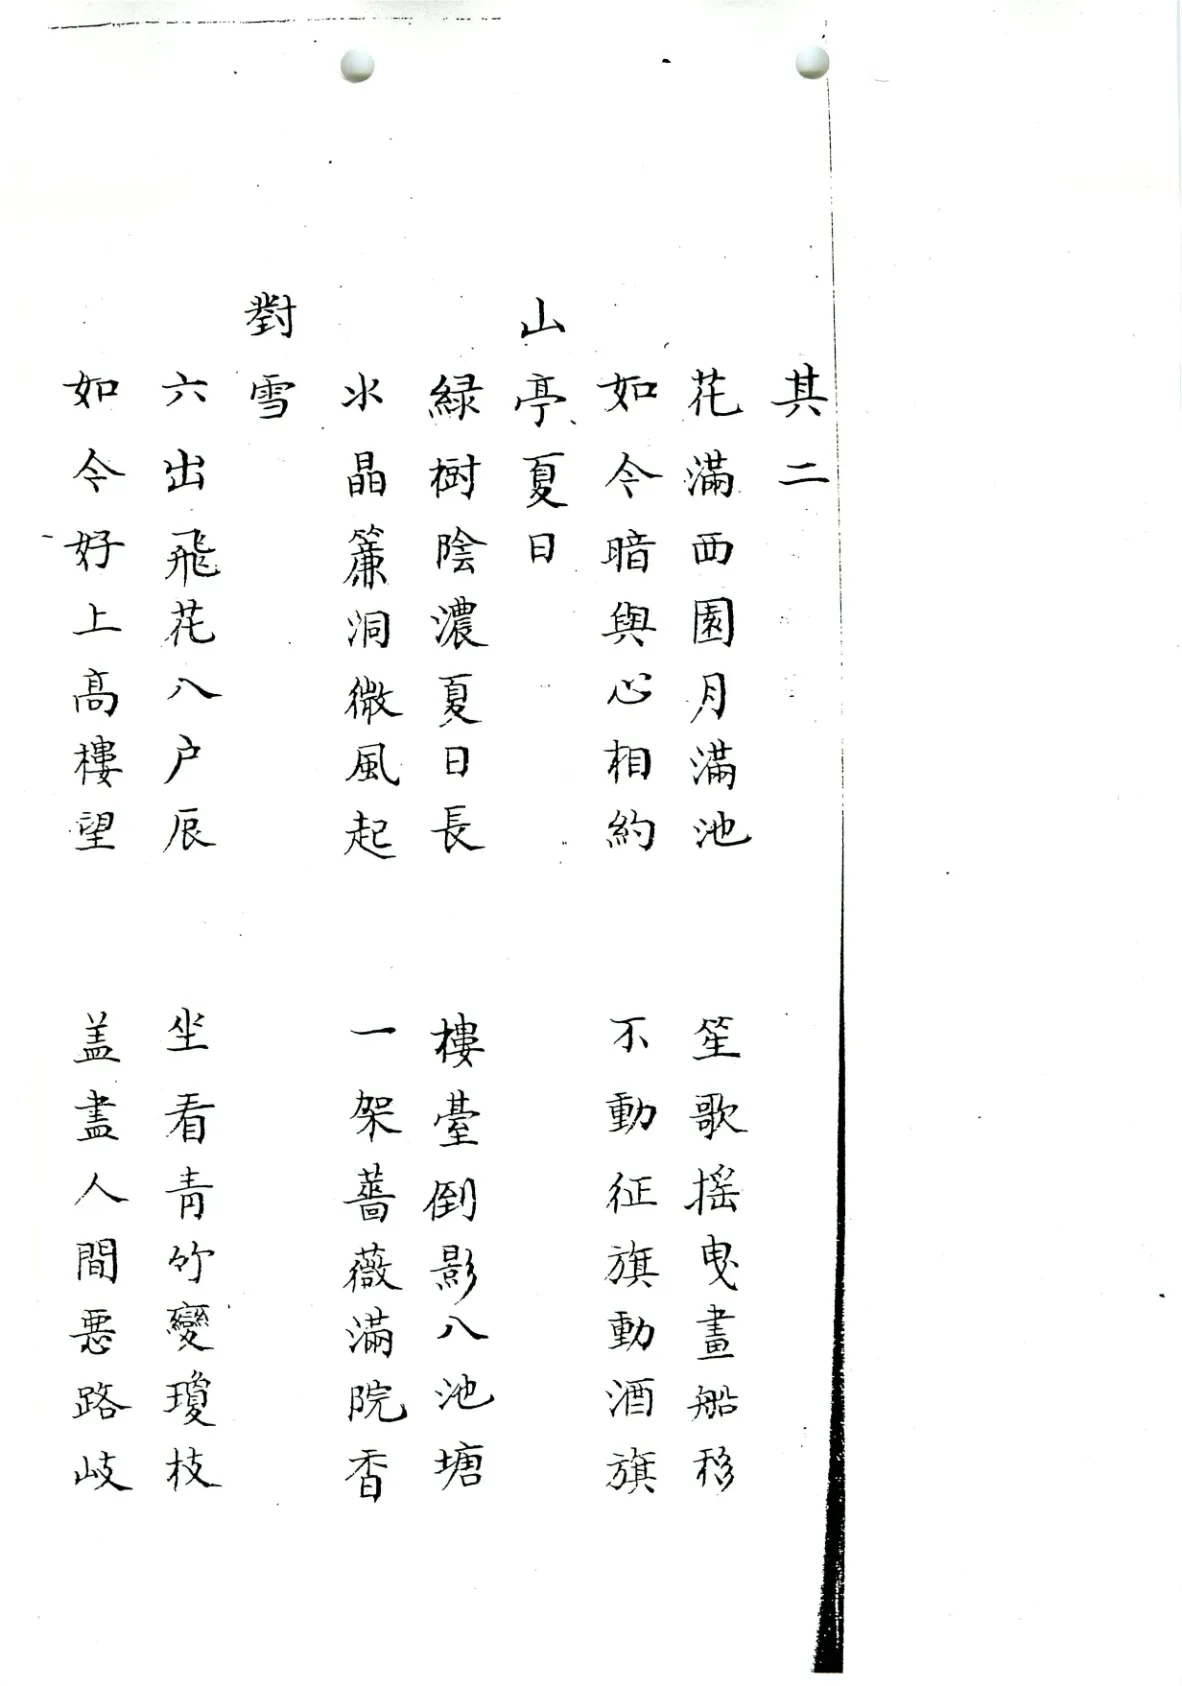 其二
花滿西園月滿池 笙歌搖曳畫船移
如今暗與心相約 不動征旗動酒旗
山亭夏日
緑樹陰濃夏日長 樓臺倒影入池塘
水晶簾洞微風起 一架薔薇滿院香
對雪
六出飛花入户辰 坐看青竹變瓊枝
如今好上高樓望 盖盡人間悪路岐